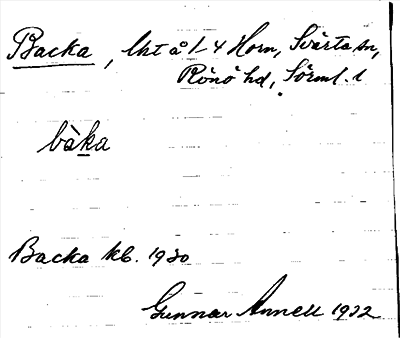 Backa, lht å 1/4 Horn, Svärta sn,
Rönö hd, Sörml. l
bàka
Backa kb. 1930
Gunnar Annell 1932